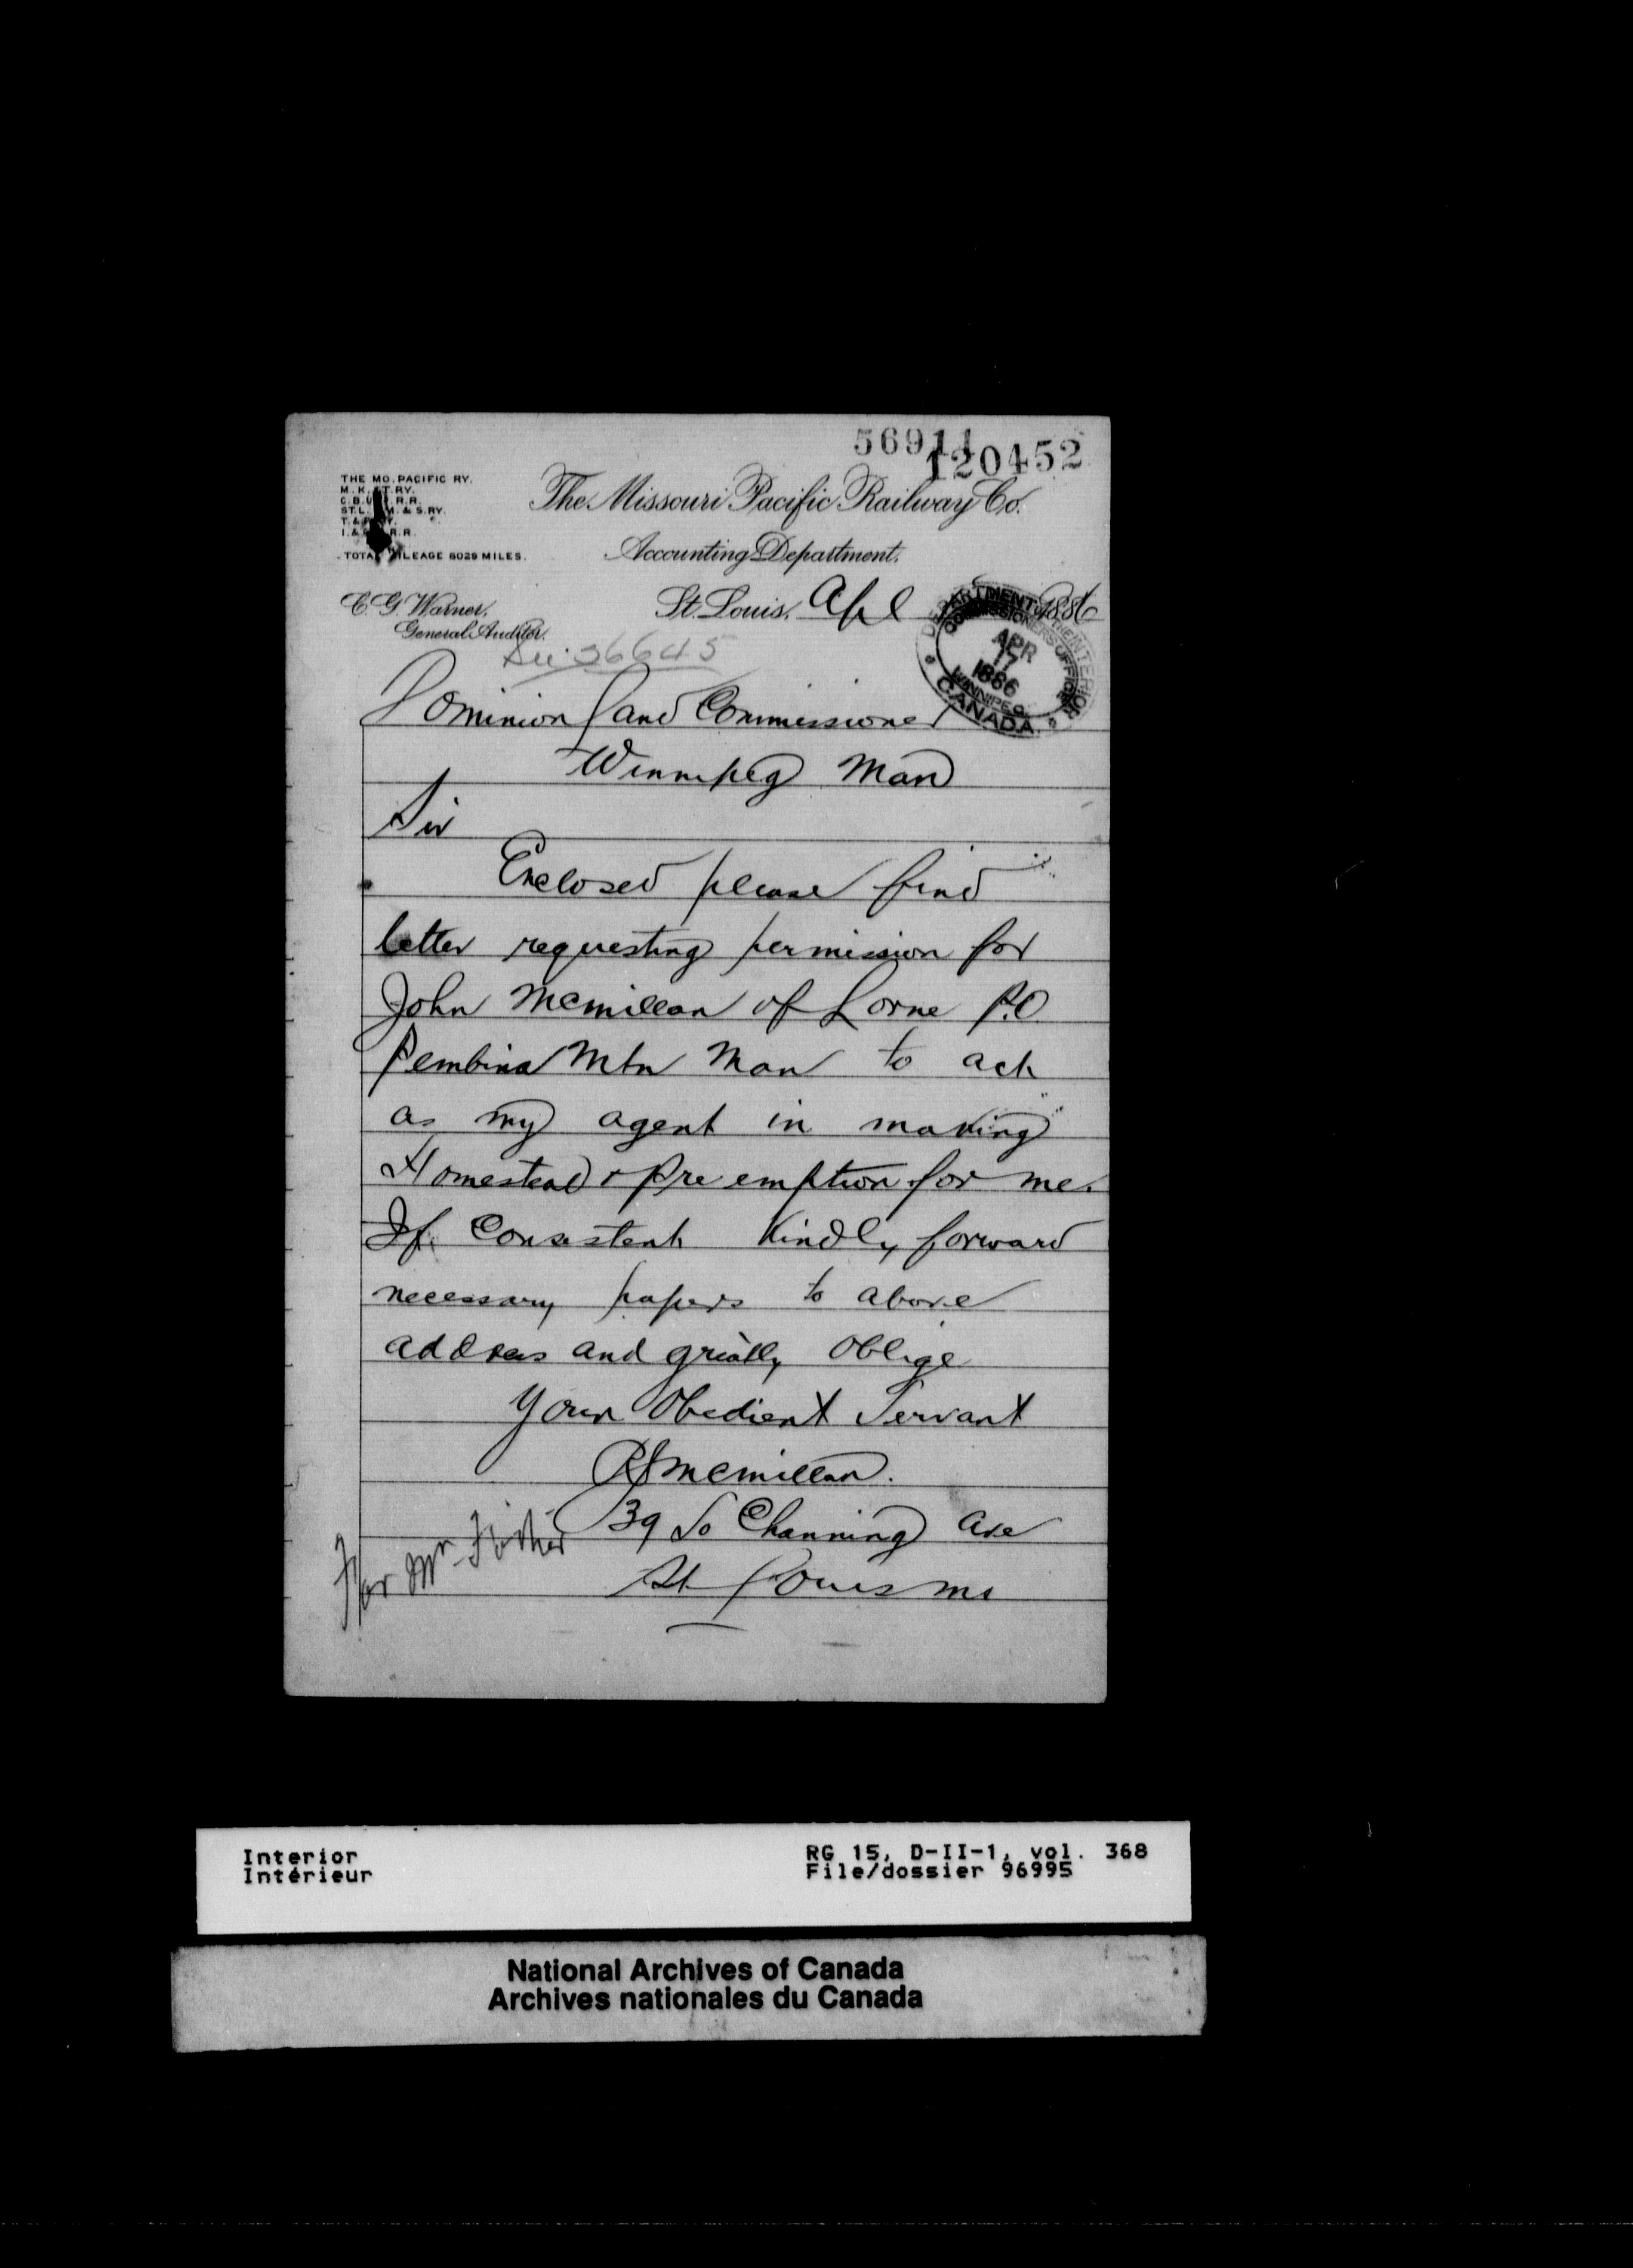 56911
120452
THE MO. PACIFIC RY.
M. K. & T. RY.
C. B. U. R.R.
ST. L. I. M. & S. RY.
T. & P. RY.
I. & G. R.R.
TOTAL MILEAGE 6029 MILES.
The Missouri Pacific Railway Co.
Accounting Department.
C. G. Warner,
General Auditor.
St. Louis, Apl 1886
DEPARTMENT OF THE INTERIOR
COMMISSIONERS OFFICE
APR
17
1886
WINNIPEG
CANADA
56645
Dominion Land Commissioner
Winnipeg Man
Sir
Enclosed please find
letter requesting permission for
John McMillan of Lorne P.O.
Pembina Mtn Man to act
as my agent in making
Homestead & Pre emption for me.
If Consistent Kindly forward
necessary papers to above
address and greatly Oblige
Your Obedient Servant
McMillan.
39 So Channing Ave
St Louis Mo
For Mr
Interior
Intérieur
RG 15, D-II-1, vol. 368
File/dossier 96995
National Archives of Canada
Archives nationales du Canada